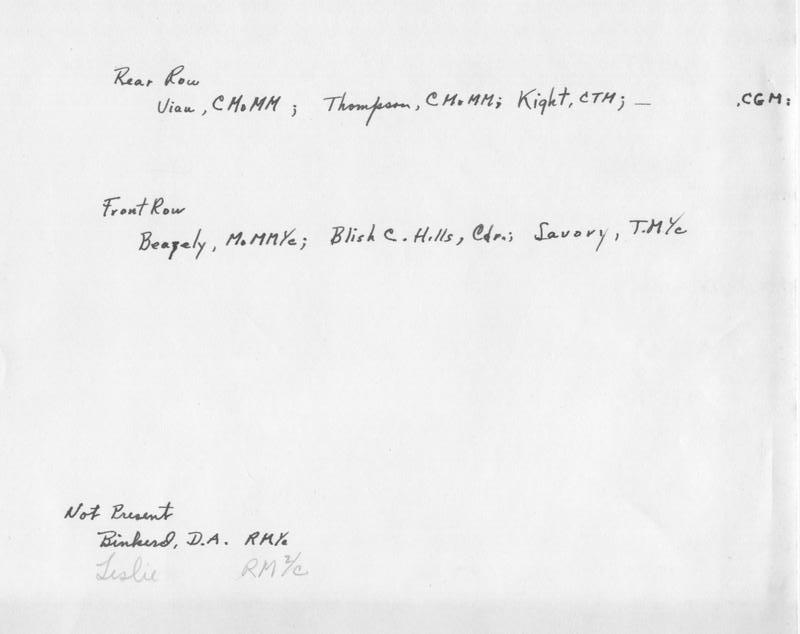 Rear Row
Viau, CMoMM; Thompson, CMoMM; Kight, CTM; — ,CGM:
Front Row
Beazely, MoMM1/c; Blish C. Hills, Cdr.; Savory, TM1/c
Not Present
Binkerd, D.A. RM1/c
Leslie RM2/c